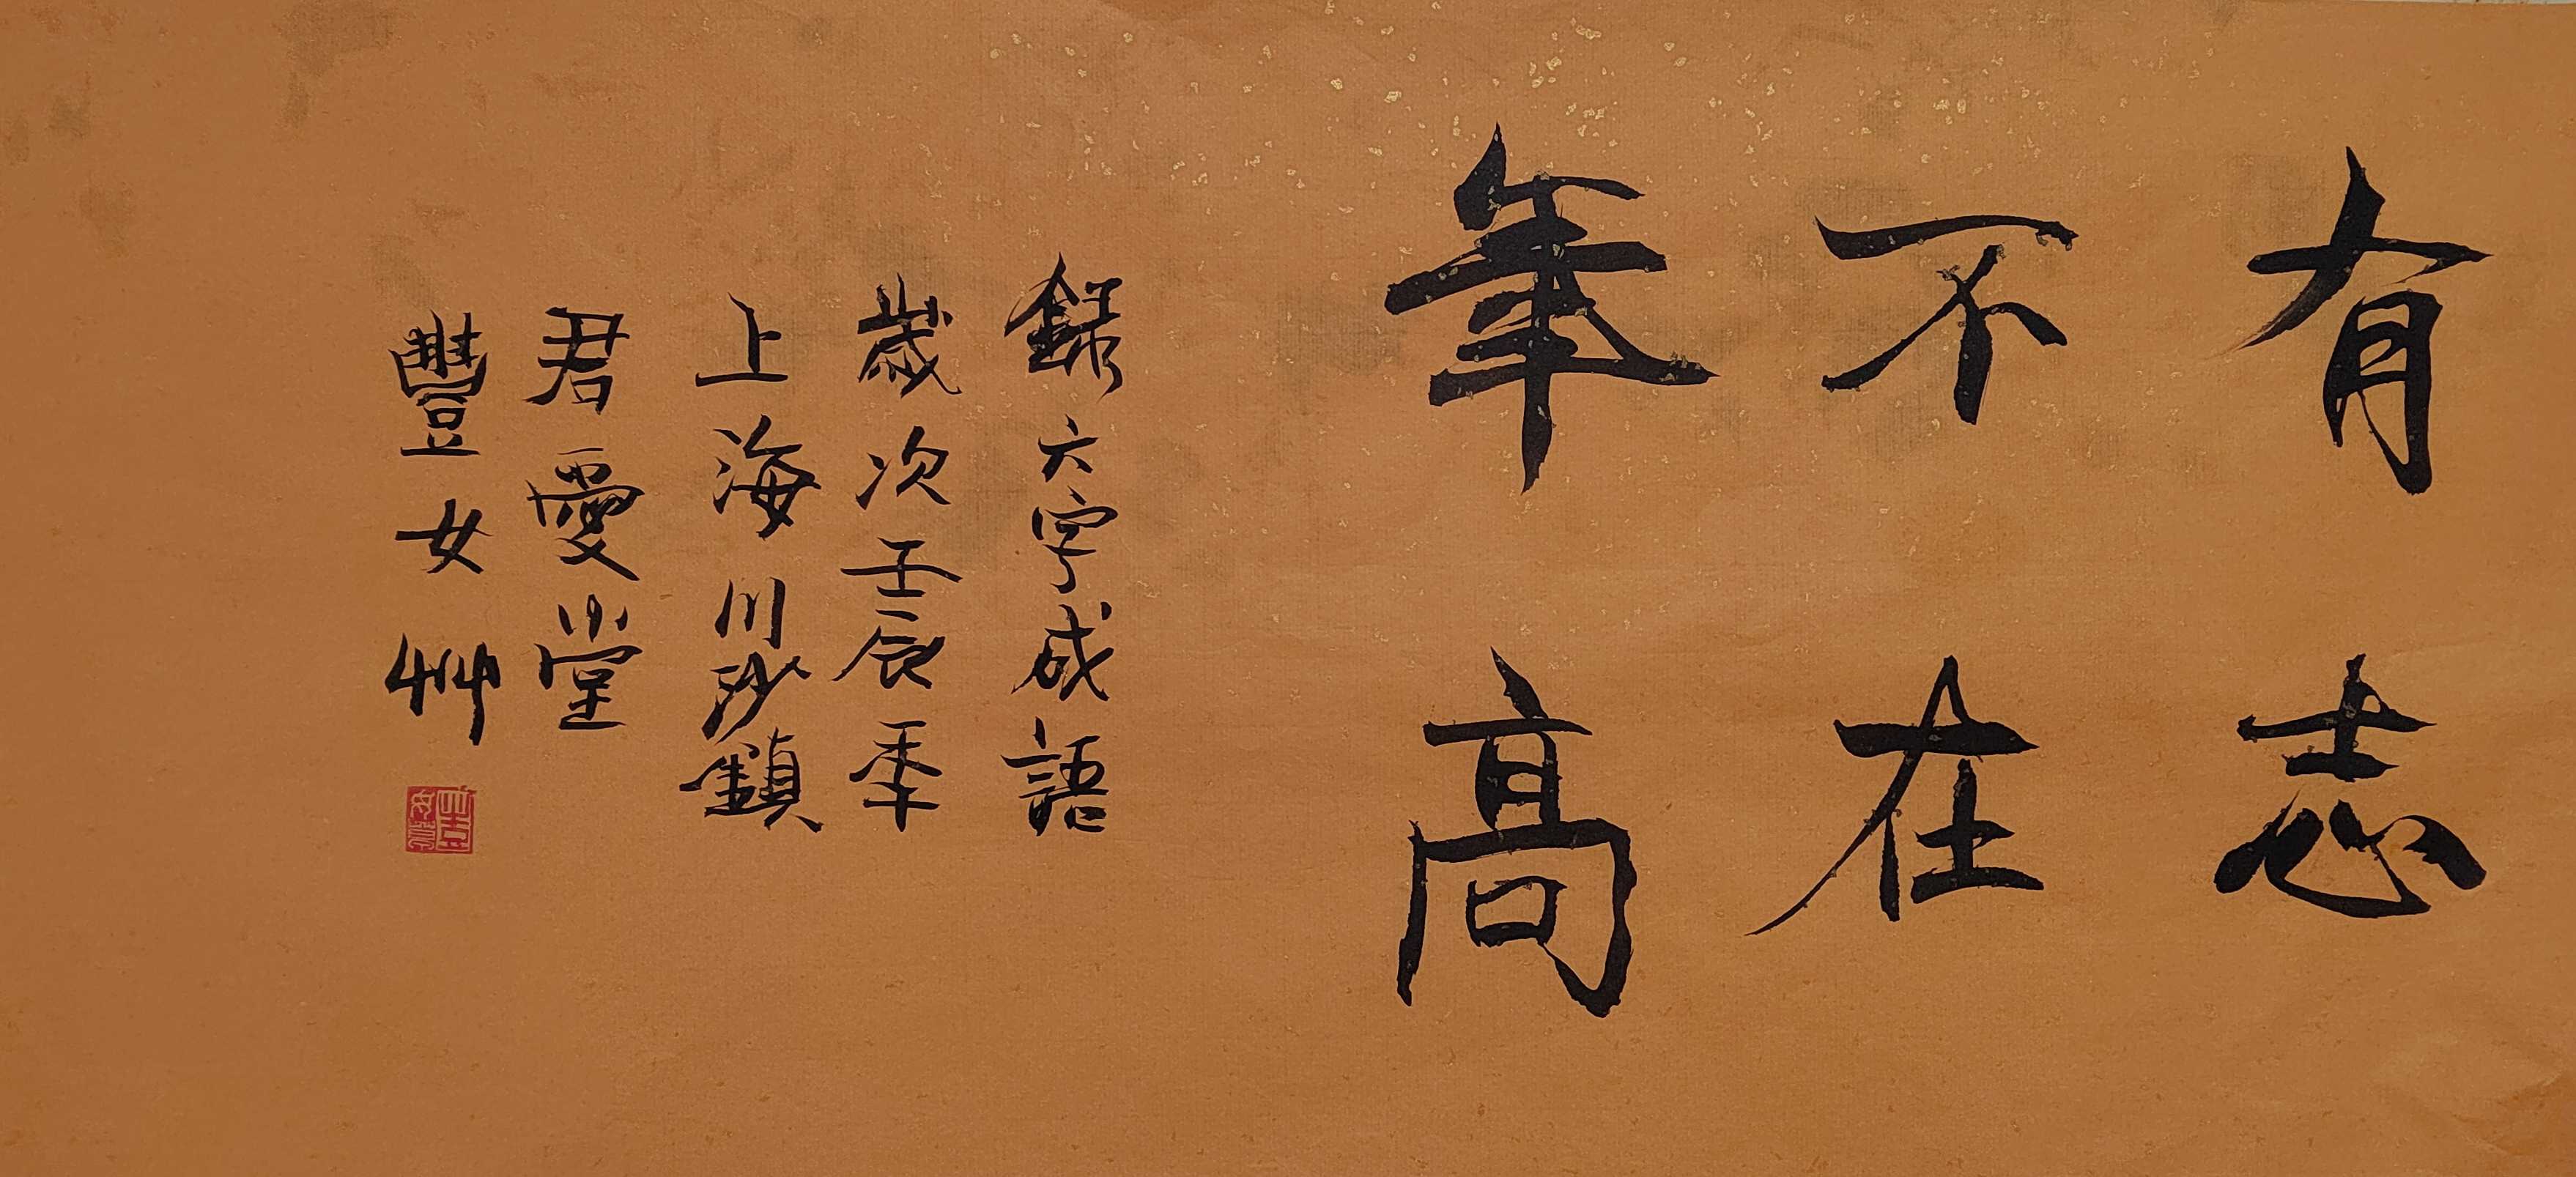 有志
不在
年高
録六字成語
歲次壬辰季
上海川沙鎮
君愛堂
豐女艸